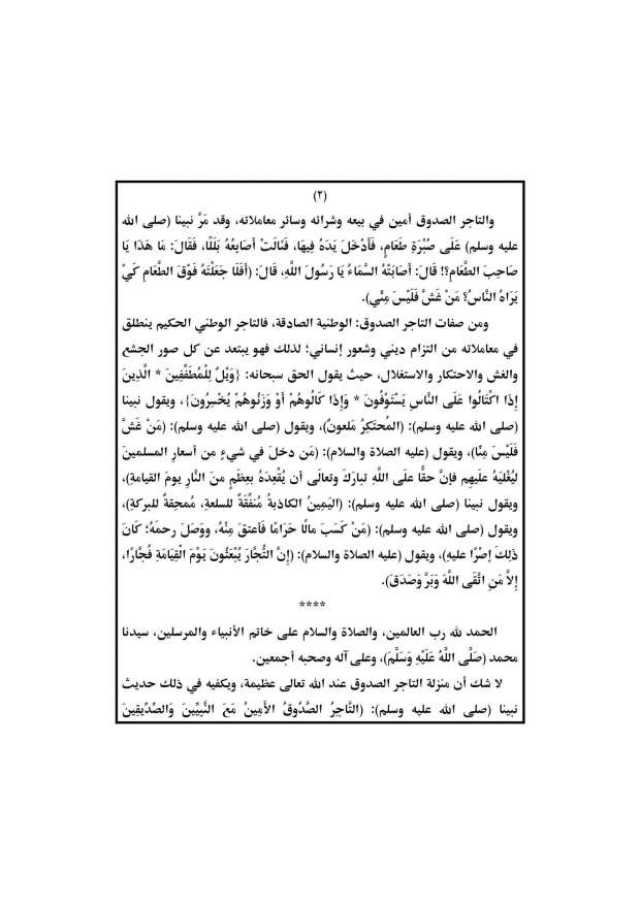 (٢)
والتاجر الصدوق أمين في بيعه وشرائه وسائر معاملاته، وقد مَرَّ نبينا (صلى الله
عليه وسلم) عَلَى صُبْرَةِ طَعَامٍ، فَأَدْخَلَ يَدَهُ فِيهَا، فَنَالَتْ أَصَابِعُهُ بَلَلًا، فَقَالَ: مَا هَذَا يَا
صَاحِبَ الطَّعَامِ؟! قَالَ: أَصَابَتْهُ السَّمَاءُ يَا رَسُولَ اللَّهِ، قَالَ: (أَفَلَا جَعَلْتَهُ فَوْقَ الطَّعَامِ كَيْ
يَرَاهُ النَّاسُ؟ مَنْ غَشَّ فَلَيْسَ مِنِّي).
ومن صفات التاجر الصدوق: الوطنية الصادقة، فالتاجر الوطني الحكيم ينطلق
في معاملاته من التزام ديني وشعور إنساني؛ لذلك فهو يبتعد عن كل صور الجشع
والغش والاحتكار والاستغلال، حيث يقول الحق سبحانه: {وَيْلٌ لِلْمُطَفِّفِينَ * الَّذِينَ
إِذَا اكْتَالُوا عَلَى النَّاسِ يَسْتَوْفُونَ * وَإِذَا كَالُوهُمْ أَوْ وَزَنُوهُمْ يُخْسِرُونَ}، ويقول نبينا
(صلى الله عليه وسلم): (المُحتَكِرُ مَلعونٌ)، ويقول (صلى الله عليه وسلم): (مَنْ غَشَّ
فَلَيْسَ مِنَّا)، ويقول (عليه الصلاة والسلام): (مَن دخلَ في شيءٍ من أسعارِ المسلمينَ
ليُغْلِيَهُ علَيهِم فإنَّ حقًّا علَى اللَّهِ تبارَكَ وتعالَى أن يُقْعِدَهُ بعِظْمٍ منَ النَّارِ يومَ القيامةِ)،
ويقول نبينا (صلى الله عليه وسلم): (اليَمِينُ الكاذبةُ مُنَفِّقَةٌ للسلعةِ، مُمحِقةٌ للبركةِ)،
ويقول (صلى الله عليه وسلم): (مَنْ كَسَبَ مالًا حَرَامًا فَأعتقَ مِنْهُ، ووَصَلَ رحمَهُ؛ كَانَ
ذلِكَ إصْرًا عليهِ)، ويقول (عليه الصلاة والسلام): (إِنَّ التُّجَّارَ يُبْعَثُونَ يَوْمَ الْقِيَامَةِ فُجَّارًا،
إِلاَّ مَنِ اتَّقَى اللَّهَ وَبَرَّ وَصَدَقَ).
****
الحمد لله رب العالمين، والصلاة والسلام على خاتم الأنبياء والمرسلين، سيدنا
محمد (صَلَّى اللَّهُ عَلَيْهِ وَسَلَّمَ)، وعلى آله وصحبه أجمعين.
لا شك أن منزلة التاجر الصدوق عند الله تعالى عظيمة، ويكفيه في ذلك حديث
نبينا (صلى الله عليه وسلم): (التَّاجِرُ الصَّدُوقُ الأَمِينُ مَعَ النَّبِيِّينَ وَالصِّدِّيقِينَ